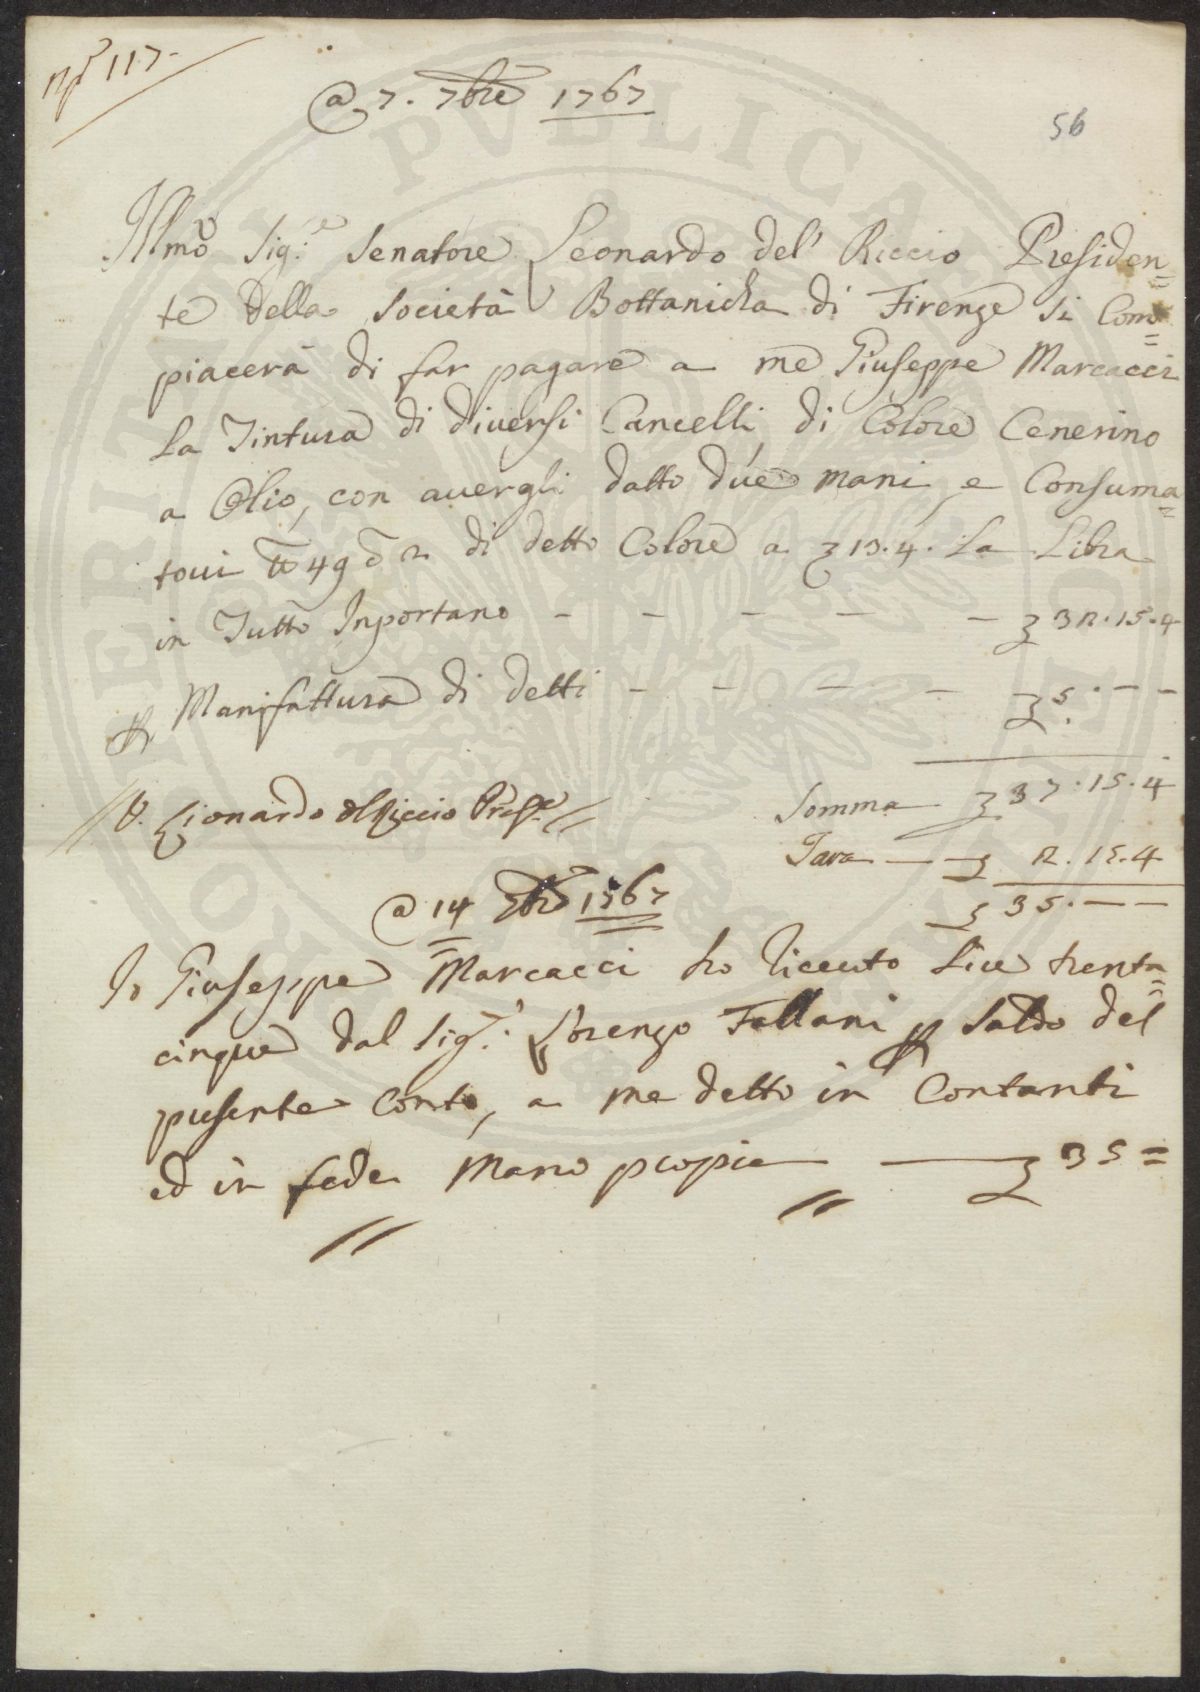 Nº 117.
@ 7. 7bre 1767
56
Illmo Sig.re Senatore Leonardo del' Riccio Presiden=
te della Società Bottanicha di Firenze si Com=
piacerà di far pagare a me Giuseppe Marcacci
La Tintura di diversi Cancelli di Colore Cenerino
a Olio, con avergli datto due mani, e Consuma=
tovi 49 2 di detto Colore a 13.4. La Libra
in Tutto Inportano - - - - - 32.15.4
Manifattura di detti - - - - 5. - -
V. Lionardo del Riccio Pres.e
Somma 37.15.4
Tara 2.15.4
35. - -
@ 14 7bre 1767
Io Giuseppe Marcacci ho riceuto Lire trenta=
cinque dal Sig.r Lorenzo Fallani p Saldo del
presente Conto, a me detto in Contanti
ed in fede Mano propia 35 =
NERITAS PUBLICAE FELICITATI